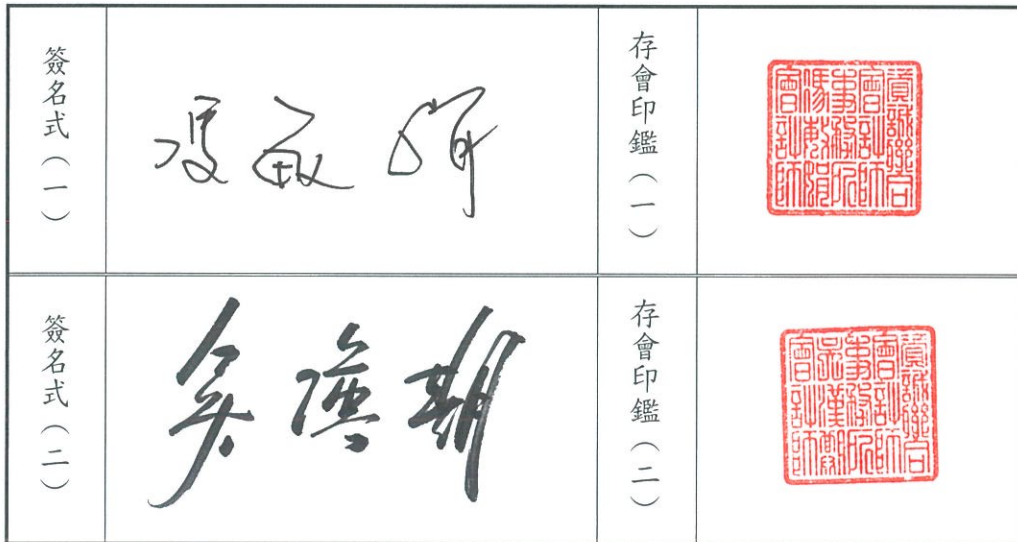 簽名式（一）
馮敏娟
存會印鑑（一）
資誠聯合
會計師
事務所
馮敏娟
會計師
簽名式（二）
吳漢期
存會印鑑（二）
資誠聯合
會計師
事務所
吳漢期
會計師